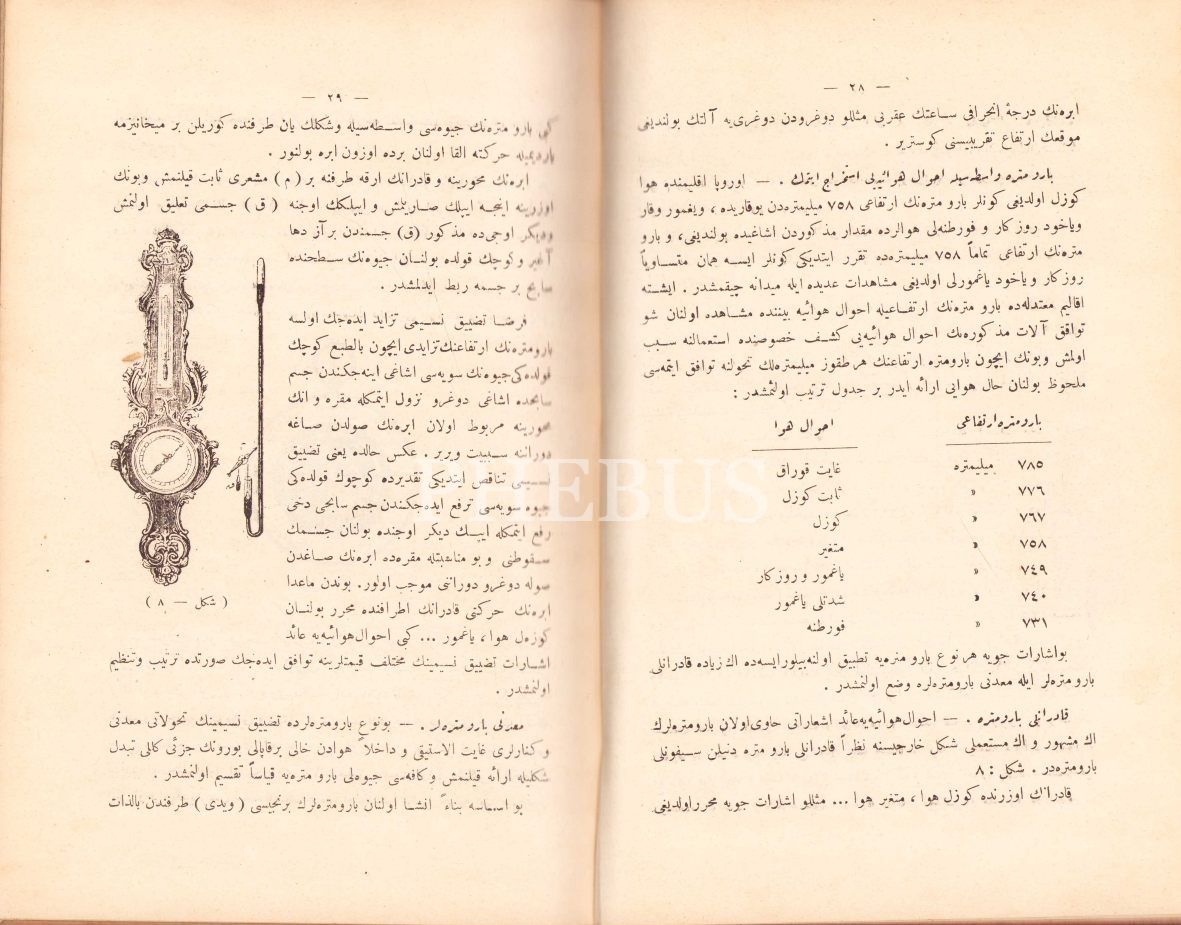 — ٢٨ —
ابره‌نك درجهٔ انحرافى ساعتك عقربى مثللو دوغرودن دوغرى‌يه آلتك بولنديغى
موقعك ارتفاع تقريبيسنى كوسترير .
بارومتره واسطه‌سيله احوال هوائيه‌يى استخراج ايتمك . — اوروپا اقليمنده هوا
كوزل اولديغى كونلر بارو متره‌نك ارتفاعى ٧٥٨ ميليمتره‌دن يوقاريده ، ويغمور وقار
وياخود روزكار و فورطنه‌لى هوالرده مقدار مذكوردن اشاغيده بولنديغى ، و بارو
متره‌نك ارتفاعى تماماً ٧٥٨ ميليمتره‌ده تقرر ايتديكى كونلر ايسه همان متساوياً
روزكار و ياخود ياغمورلى اولديغى مشاهدات عديده ايله ميدانه چيقمشدر . ايشته
اقاليم معتدله‌ده بارو متره‌نك ارتفاعيله احوال هوائيه بيننده مشاهده اولنان شو
توافق آلات مذكوره‌نك احوال هوائيه‌يى كشف خصوصنده استعمالنه سبب
اولمش وبونك ايچون بارومتره ارتفاعنك هر طقوز ميليمتره‌لك تحولنه توافق ايتمه‌سى
ملحوظ بولنان حال هوايى ارائه ايدر بر جدول ترتيب اولنمشدر :
بارومتره ارتفاعى احوال هوا
٧٨٥ ميليمتره غايت قوراق
٧٧٦ » ثابت كوزل
٧٦٧ » كوزل
٧٥٨ » متغير
٧٤٩ » ياغمور و روزكار
٧٤٠ » شدتلى ياغمور
٧٣١ » فورطنه
بواشارات جويه هر نوع بارو متره‌يه تطبيق اولنه‌بيلورايسه‌ده اك زياده قادرانلى
بارومتره‌لر ايله معدنى بارومتره‌لره وضع اولنمشدر .
قادرانلى بارومتره . — احوال هوائيه‌يه عائد اشعاراتى حاوى اولان بارومتره‌لرك
اك مشهور و اك مستعملى شكل خارجيسنه نظراً قادرانلى بارو متره دنيلن سيفونلى
بارومتره‌در . شكل : ٨
قادرانك اوزرنده كوزل هوا ، متغير هوا ... مثللو اشارات جويه محرر اولديغى
— ٢٩ —
كبى بارو متره‌نك جيوه‌سى واسطه‌سيله وشكلك يان طرفنده كوريلن بر ميخانيزمه
يارديميله حركته القا اولنان برده اوزون ابره بولنور .
ابره‌نك محورينه و قادرانك ارقه طرفنه بر ( م ) مشعرى ثابت قيلنمش وبونك
اوزرينه اينجه ايپلك صاريلمش و ايپلكك اوجنه ( ق ) جسمى تعليق اولنمش
وديكر اوجى‌ده مذكور (ق) جسمندن برآز دها
آغير وكوچك قولده بولنان جيوه‌نك سطحنده
سابح بر جسمه ربط ايدلمشدر .
فرضا تضييق نسيمى تزايد ايده‌جك اولسه
بارومتره‌نك ارتفاعنك تزايدى ايچون بالطبع كوچك
قولده‌كى جيوه‌نك سويه‌سى اشاغى اينه‌جكندن جسم
سابحده اشاغى دوغرو نزول ايتمكله مقره و انك
محورينه مربوط اولان ابره‌نك صولدن صاغه
دوراننه سببيت ويرير . عكس حالده يعنى تضييق
نسيمى تناقص ايتديكى تقديرده كوچوك قولده‌كى
جيوه سويه‌سى ترفع ايده‌جكندن جسم سابحى دخى
رفع ايتمكله ايپك ديكر اوجنده بولنان جسمك
سقوطنى و بو مناسبتله مقره‌ده ابره‌نك صاغدن
صوله دوغرو دورانى موجب اولور. بوندن ماعدا
ابره‌نك حركتى قادرانك اطرافنده محرر بولنان
كوزل هوا ، ياغمور ... كبى احوال‌هوائيه‌يه عائد
اشارات تضييق نسيمينك مختلف قيمتلرينه توافق ايده‌جك صورتده ترتيب وتنظيم
اولنمشدر .
( شكل — ٨ )
معدنى بارومتره‌لر . — بونوع بارومتره‌لرده تضييق نسيمينك تحولاتى معدنى
و كنارلرى غايت الاستيقى و داخلاً هوادن خالى برقاپالى بورونك جزئى كالى تبدل
شكليله ارائه قيلنمش وكافه‌سى جيوه‌لى بارو متره‌يه قياساً تقسيم اولنمشدر .
بو اساسه بناءً انشا اولنان بارومتره‌لرك برنجيسى ( ويدى ) طرفندن بالذات
PHEBUS